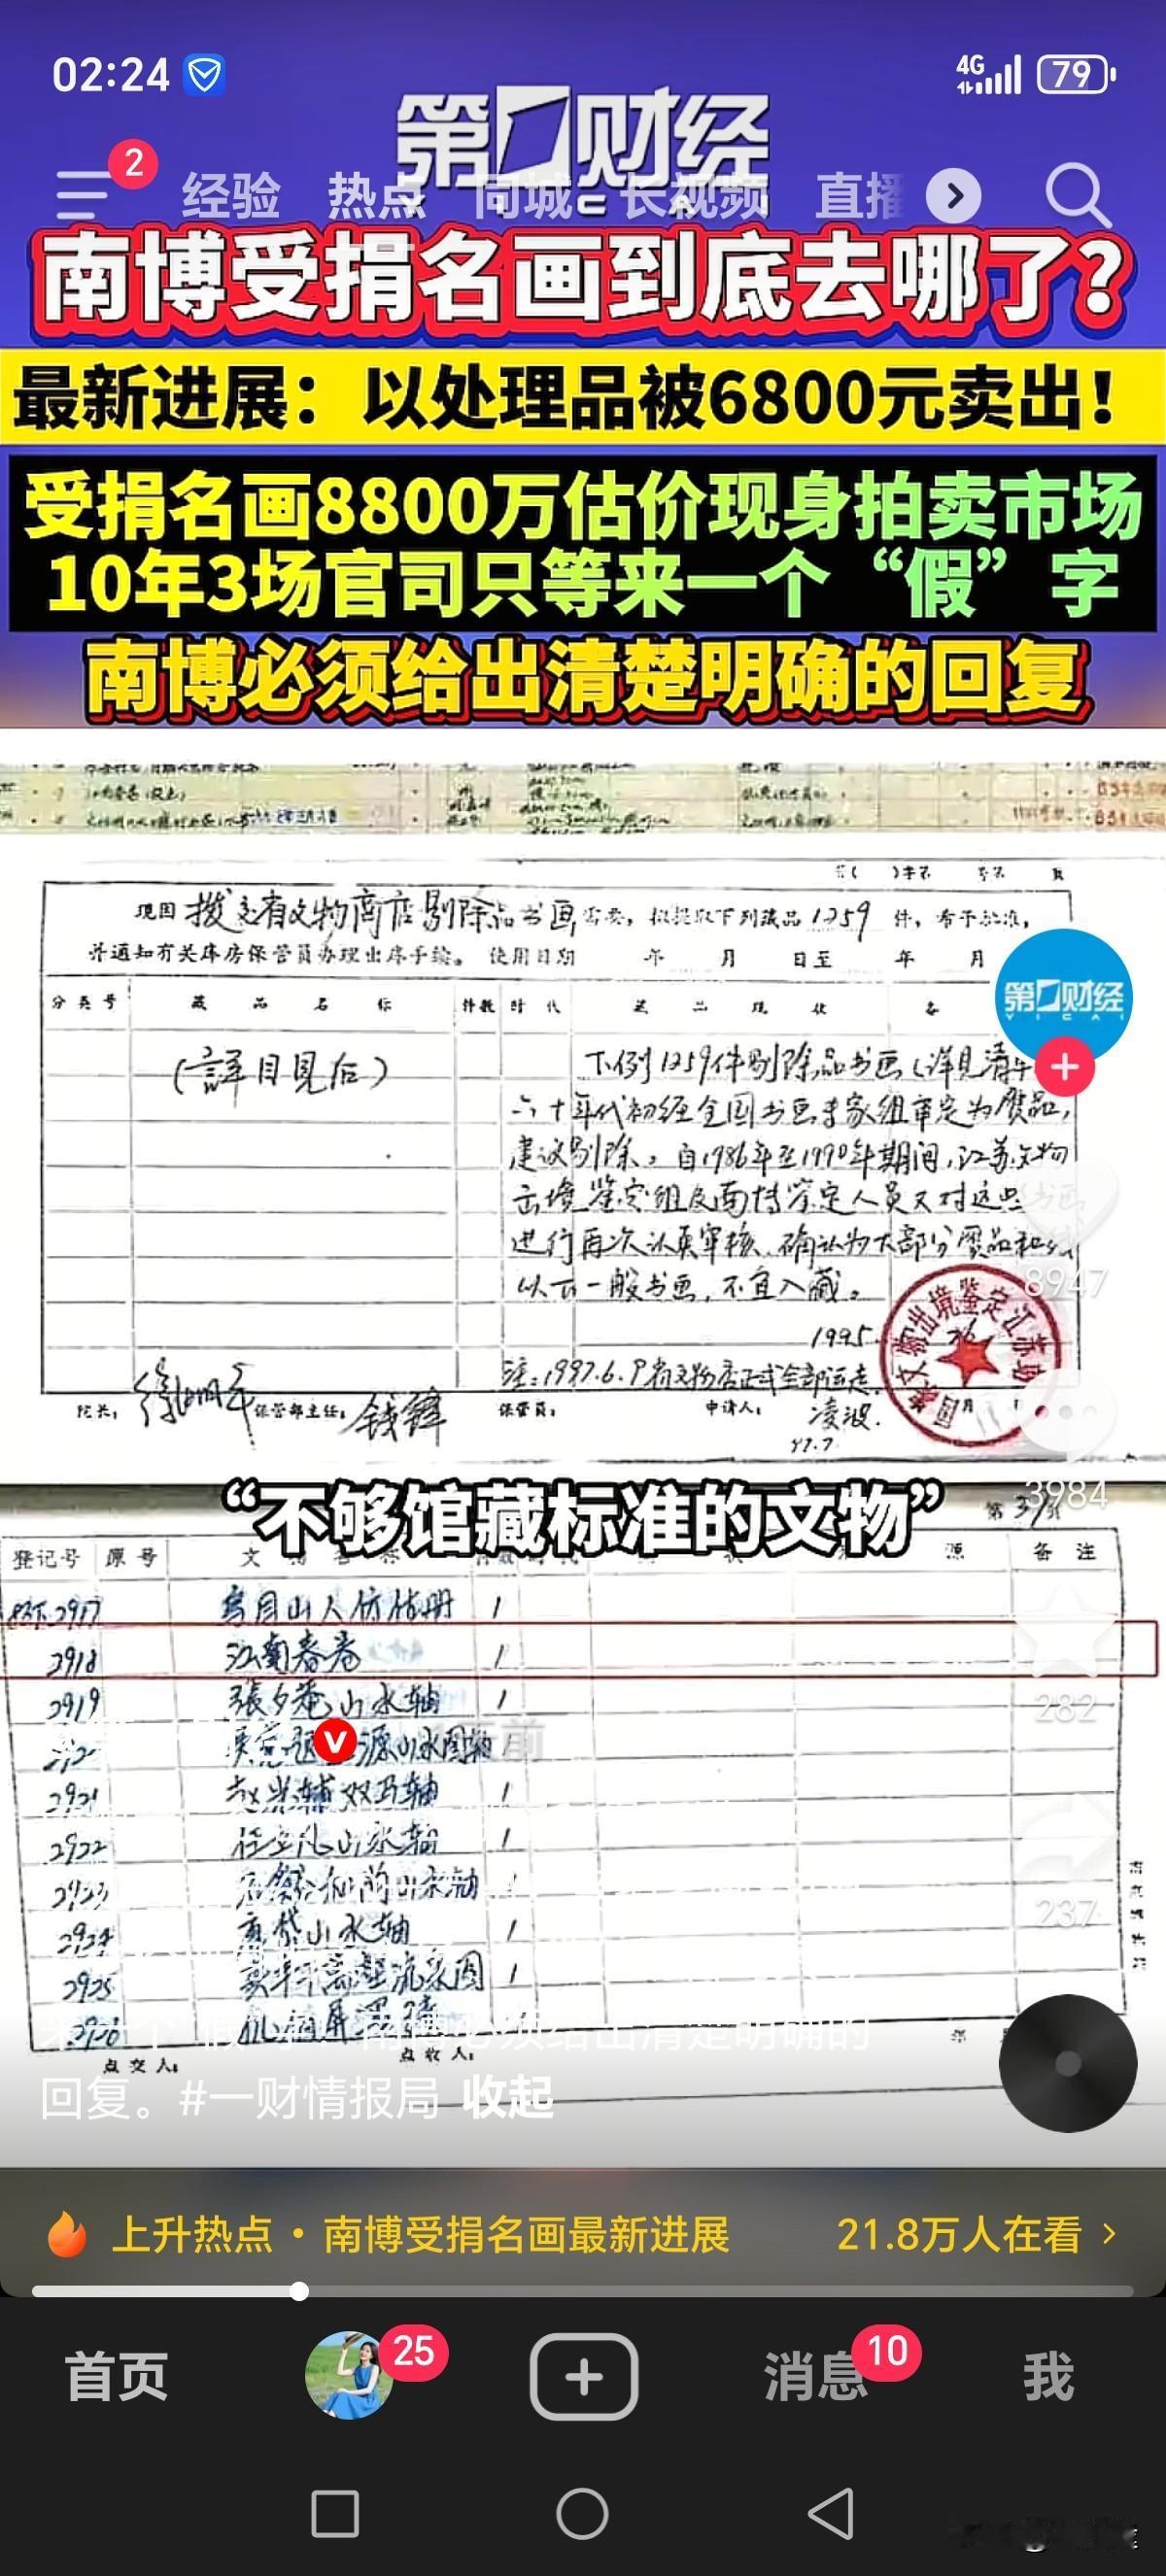 02:24
4G
79
第一财经
YICAI
2
经验 热点 同城 长视频 直播
南博受捐名画到底去哪了?
最新进展：以处理品被6800元卖出!
受捐名画8800万估价现身拍卖市场
10年3场官司只等来一个“假”字
南博必须给出清楚明确的回复
现因拨交省文物商店剔除品书画需要，拟提取下列藏品1259件，希予批准，
并通知有关库房保管员办理出库手续。 使用日期 年 月 日至 年 月
分类号 藏品名称 件数 时代 藏品现状 备
(詳目見后)
下例1259件剔除品书画(详见清单
六十年代初经全国书画专家组审定为赝品,
建议剔除。自1986年至1990年期间,江苏文物
出境鉴定组及南博鉴定人员又对这些书画
进行再次认真审核、确认为大部分赝品和
以下一般书画,不宜入藏。
1995
注:1997.6.9省文物店正式全部运走.
院长： 徐湖平 保管部主任： 钱锋 保管员： 申请人： 凌波.
97.7.
第一财经
YICAI
8947
3984
“不够馆藏标准的文物”
登记号 原号 源 备注
2917 1
2918 江南春卷 1
2919 張夕菴山水轴 1
2921 赵光辅双马轴 1
2922 山水轴 1
2924 山水轴 1
2925 1
282
237
点交人： 点收人：
南博必须给出清楚明确的
回复。#一财情报局 收起
上升热点·南博受捐名画最新进展 21.8万人在看
首页 25 消息 10 我